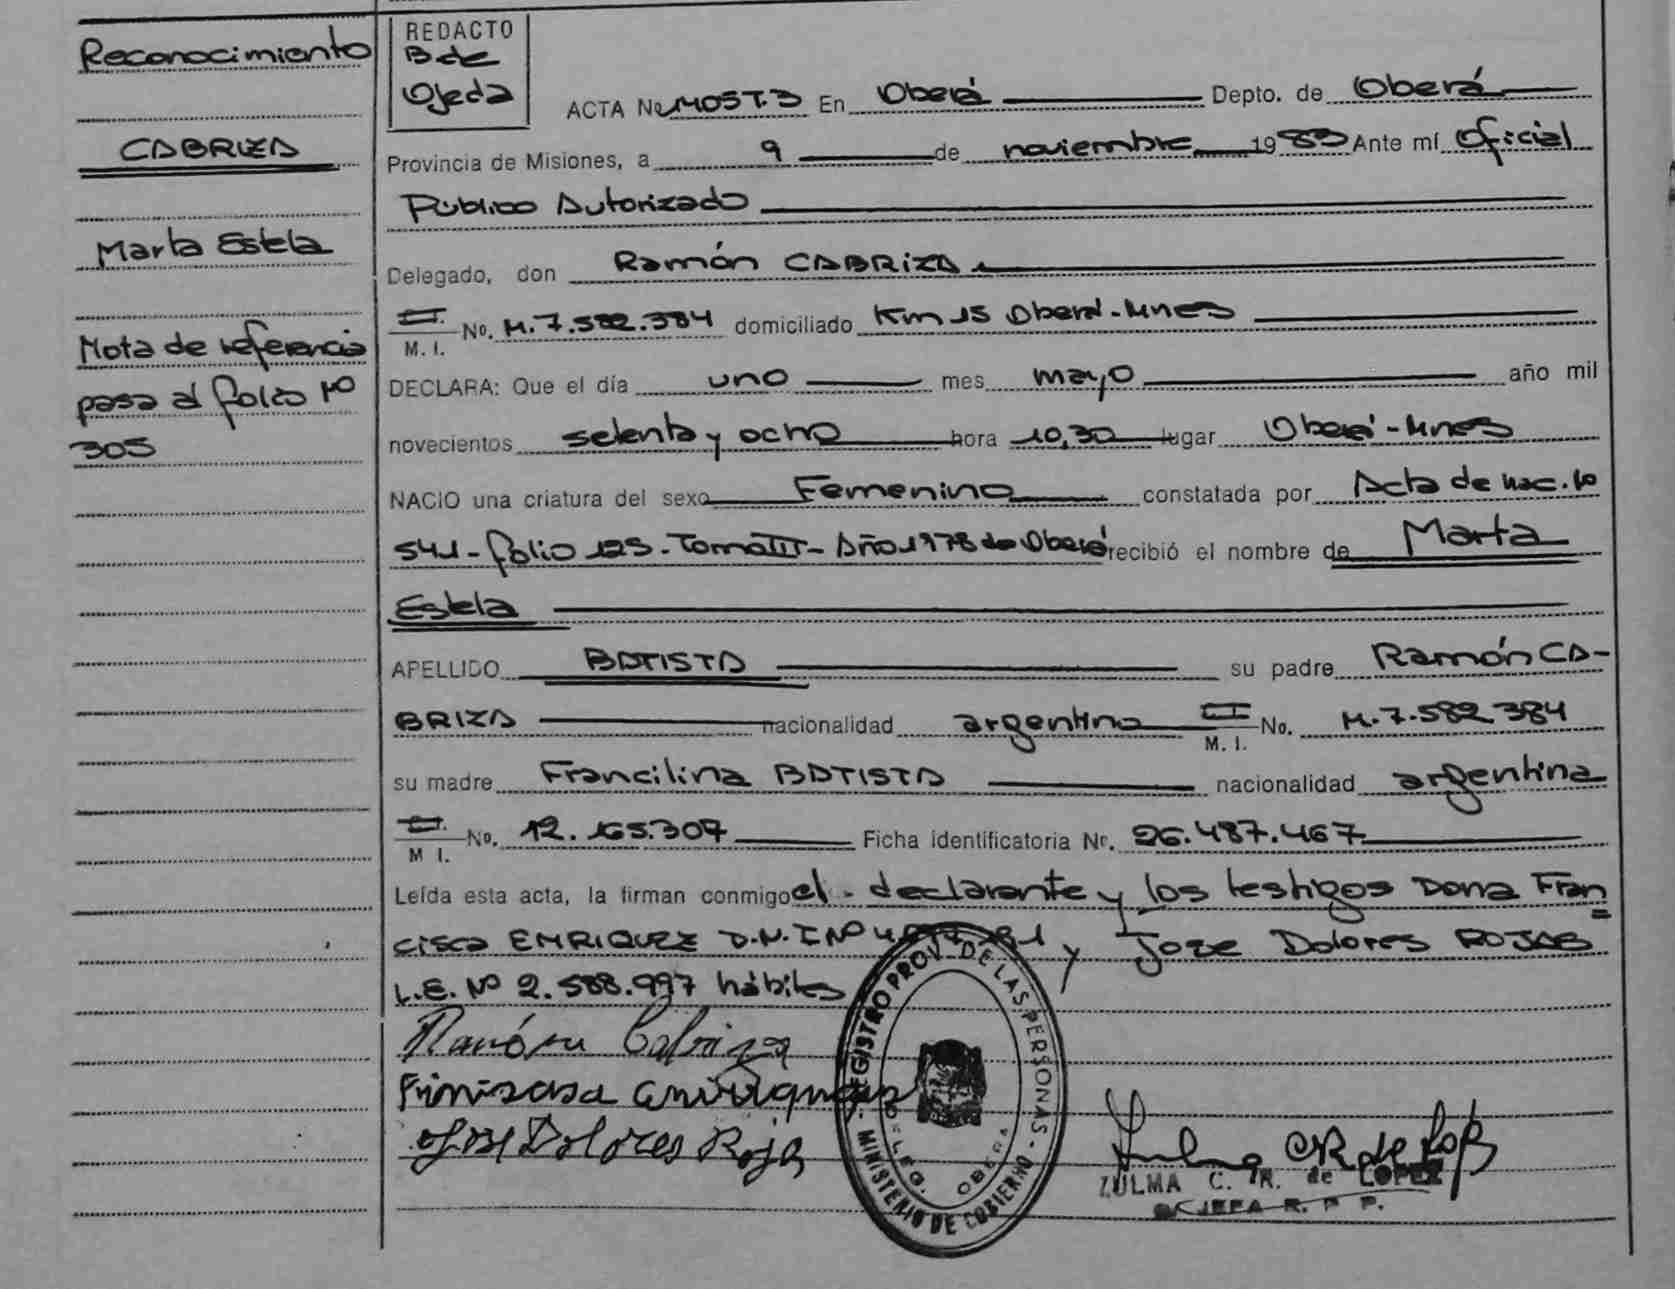 Reconocimiento
CABRIZA
Marta Estela
Nota de referencia
pasa al folio Nº
305
REDACTO
B de
Ojeda
ACTA No En Oberá Depto. de Oberá
Provincia de Misiones, a 9 de noviembre 1983 Ante mí Oficial
Público Autorizado
Delegado, don Ramón CABRIZA
C.I.
M. I. No. M.7.582.384 domiciliado Km 15 Oberá-Mnes
DECLARA: Que el día uno mes mayo año mil
novecientos setenta y ocho hora 10,30 lugar Oberá-Mnes
NACIO una criatura del sexo Femenino constatada por Acta de nac.
541-folio 125-Tomo Año 1978 de Oberá recibió el nombre de Marta
Estela
APELLIDO BATISTA su padre Ramón CA-
BRIZA nacionalidad argentino C.I.
M. I. No. M.7.582.384
su madre Francilina BATISTA nacionalidad argentina
C.I.
M I. No. 12.165.307 Ficha identificatoria Nr. 26.487.467
Leída esta acta, la firman conmigo el declarante y los testigos Dona Fran
cisca ENRIQUEZ D.N.I Nº y Jose Dolores ROJAS
L.E. Nº 2.588.997 hábiles
Ramón Cabriza
Jose Dolores Roja
REGISTRO PROV. DE LAS PERSONAS - MINISTERIO DE GOBIERNO -
DELEG. OBERA
ZULMA C. R. de LOPEZ
JEFA R. P. P.